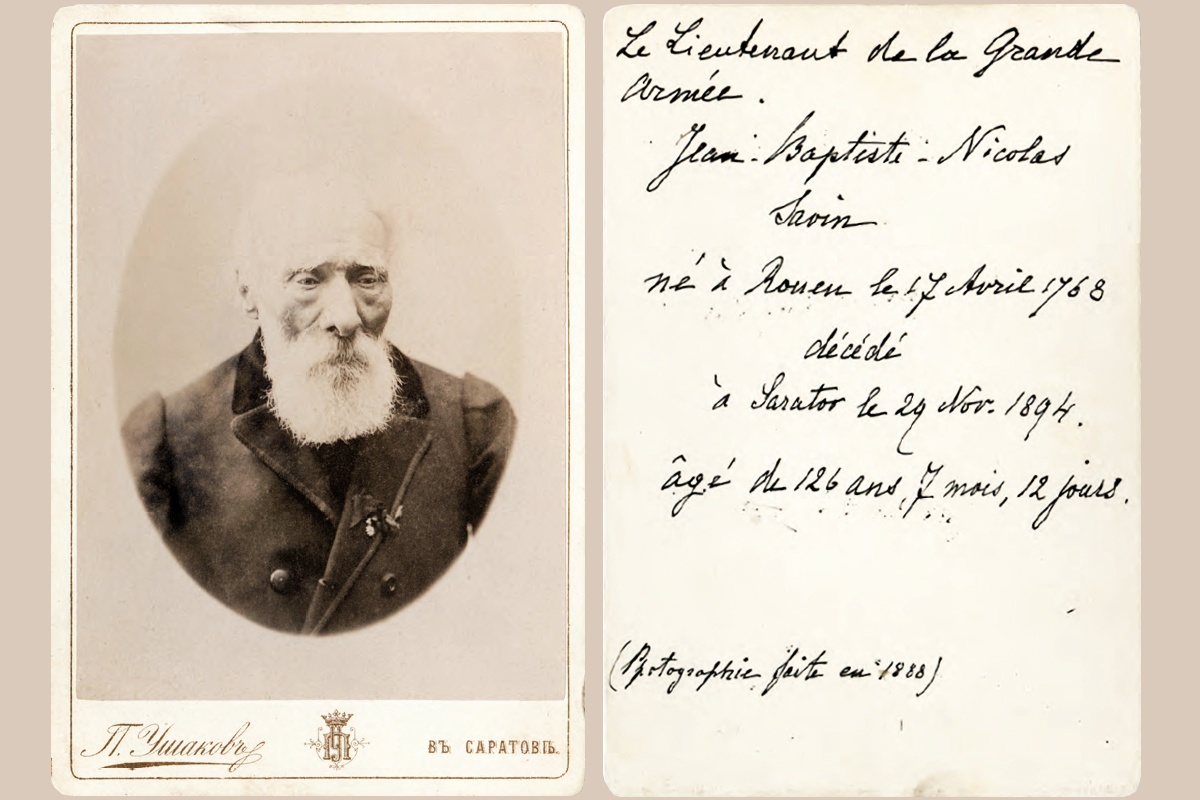 П. Ушаковъ
ВЪ САРАТОВѢ.
Le Lieutenant de la Grande
Armée.
Jean-Baptiste-Nicolas
Savin
né à Rouen le 17 Avril 1768
décédé
à Saratov le 29 Nov. 1894.
âgé de 126 ans, 7 mois, 12 jours.
(Photographie faite en 1888)